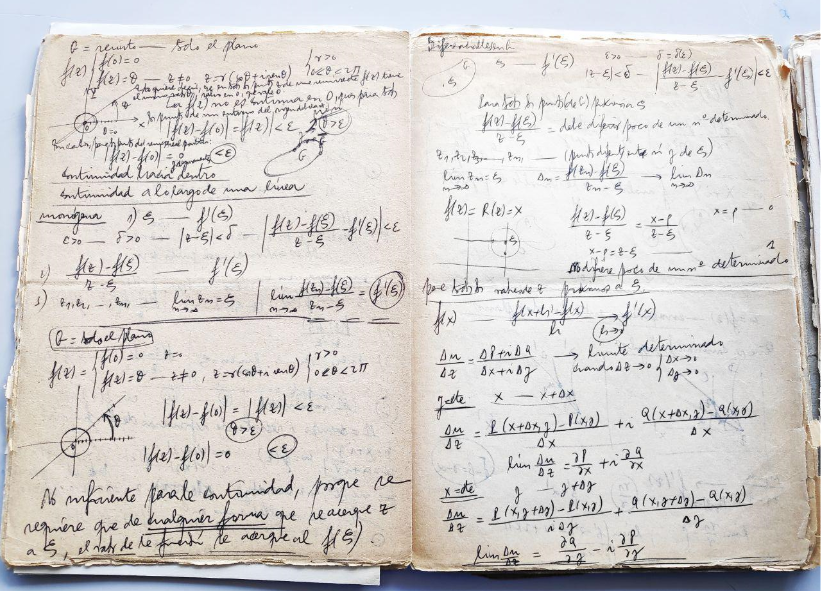 G = recinto — todo el plano
f(z) { f(0)=0
f(z)=θ — z≠0, z=r(cosθ+i senθ) { r>0
0≤θ<2π
f(z) no es continua en 0, pues para todos
|f(z)-f(0)|=|f(z)|<ε (θ>ε)
|f(z)-f(0)|=0 (<ε)
continuidad hacia dentro
continuidad a lo largo de una línea
monógena 1) ξ — f'(ξ)
ε>0 — δ>0 — |z-ξ|<δ — |f(z)-f(ξ)/z-ξ - f'(ξ)|<ε
2) f(z)-f(ξ)/z-ξ — f'(ξ)
3) z₁,z₂,…,zₙ — lim zₙ=ξ n→∞ | lim n→∞ f(zₙ)-f(ξ)/zₙ-ξ = f'(ξ)
G = todo el plano
f(z)= { f(0)=0 z=0
f(z)=θ — z≠0, z=r(cosθ+i senθ) { r>0
0≤θ<2π
|f(z)-f(0)|=|f(z)|<ε
θ>ε
|f(z)-f(0)|=0 <ε
No suficiente para la continuidad, porque se
requiere que de cualquier forma que se acerque z
a ξ, el valor de la función se acerque al f(ξ)
ξ — f'(ξ) ε>0 δ=δ(ε)
|z-ξ|<δ — |f(z)-f(ξ)/z-ξ - f'(ξ)|<ε
para todos los puntos (de G) próximos a ξ
f(z)-f(ξ)/z-ξ = debe diferir poco de un nº determinado
z₁,z₂,…,zₙ — (puntos diferentes entre sí y de ξ)
lim zₙ=ξ n→∞ Δₙ= f(zₙ)-f(ξ)/zₙ-ξ → lim Δₙ n→∞
f(z)=R(z)=x f(z)-f(ξ)/z-ξ = x-ρ/z-ξ x=ρ — 0
x-ρ=z-ξ 1
No difiere poco de un nº determinado
para todos los valores de z próximos a ξ.
f(x) f(x+h)-f(x)/h → f'(x)
h→0
Δu/Δz = ΔP+iΔQ/Δx+iΔy → límite determinado
cuando Δz→0 { Δx→0
Δy→0
y=cte x — x+Δx
Δu/Δz = P(x+Δx,y)-P(x,y)/Δx + i Q(x+Δx,y)-Q(x,y)/Δx
lim Δu/Δz = ∂P/∂x + i ∂Q/∂x
x=cte y — y+Δy
Δu/Δz = P(x,y+Δy)-P(x,y)/iΔy + Q(x,y+Δy)-Q(x,y)/Δy
lim Δu/Δz = ∂Q/∂y - i ∂P/∂y